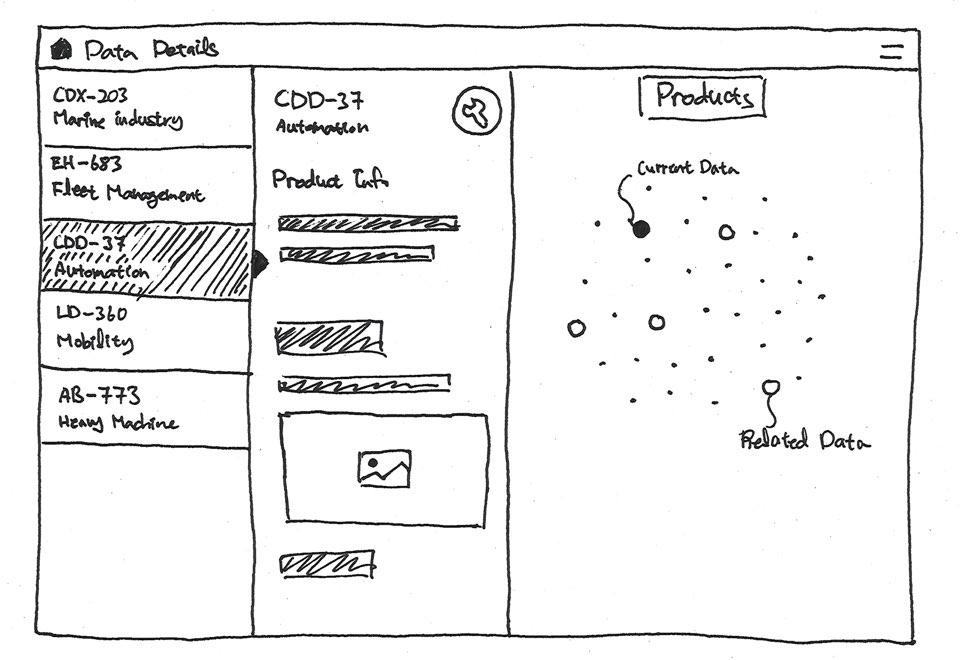 Data Details
CDX-203
Marine industry
EH-683
Fleet Management
CDD-37
Automation
LD-360
Mobility
AB-773
Heavy Machine
CDD-37
Automation
Product Info
Products
Current Data
Related Data